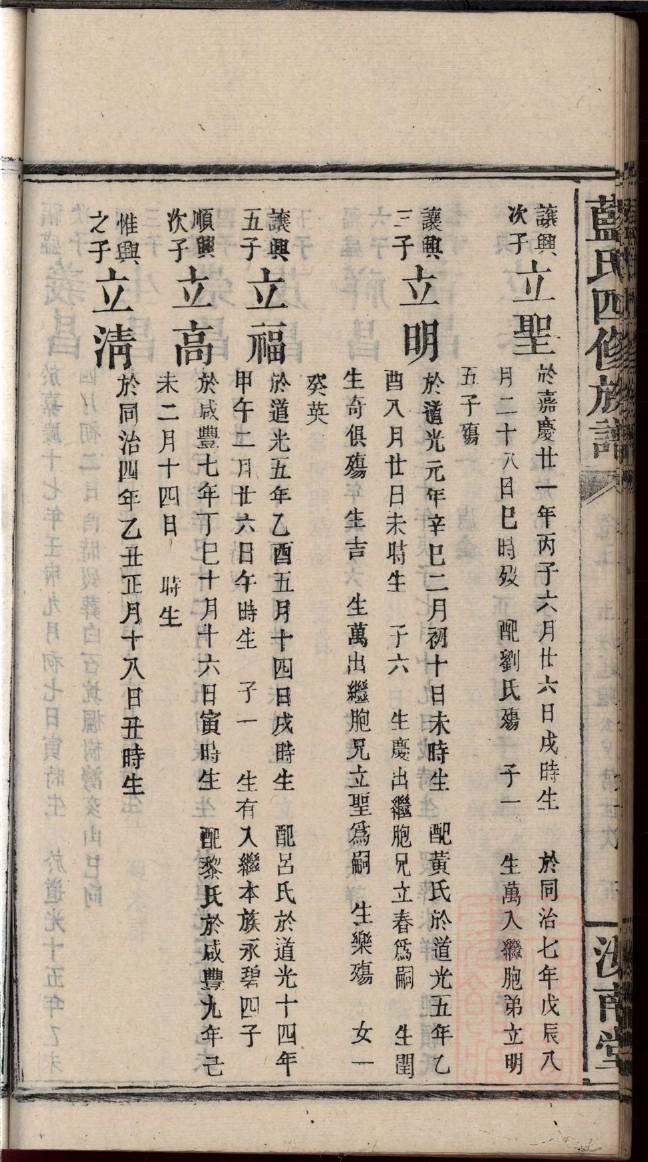 藍氏四修族譜
汝南堂
讓興次子立聖於嘉慶廿一年丙子六月廿六日戌時生　於同治七年戊辰八
月二十八日巳時歿　配劉氏殤　子一　生萬入繼胞弟立明
五子殤
讓興三子立明於道光元年辛巳二月初十日未時生　配黃氏於道光五年乙
酉八月廿日未時生　子六　生慶出繼胞兄立春爲嗣　生閏
生奇俱殤　生吉　生萬出繼胞兄立聖爲嗣　生樂殤　女一
癸英
讓興五子立福於道光五年乙酉五月十四日戌時生　配呂氏於道光十四年
甲午二月廿六日午時生　子一　生有入繼本族永碧四子
順興次子立高於咸豐七年丁巳十月十六日寅時生　配黎氏於咸豐九年己
未二月十四日　時生
惟興之子立清於同治四年乙丑正月十八日丑時生